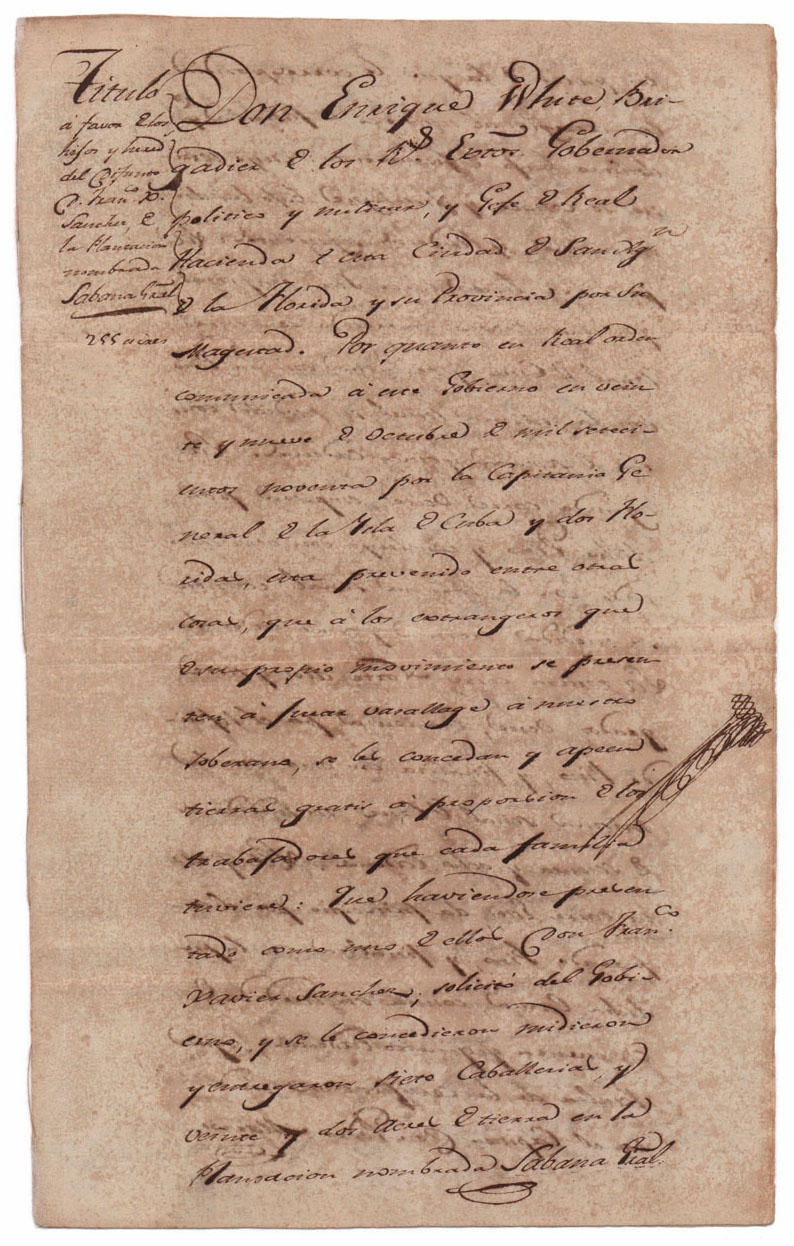 Titulo
á favor de los
hijos y hered.
del Difunto
D. Fran.co X.
Sanchez, de
la Plantacion
nombrada
Sabana Gral.
255 acres
Don Enrique White, Bri-
gadier de los R.s Extos. Gobernador
politico y militar, y Gefe de Real
Hacienda de esta Ciudad de San Ag.n
de la Florida y su Provincia por Su
Magestad. Por quanto en Real orden
comunicada á este Gobierno en vein
te y nueve de Octubre de mil seteci-
entos noventa por la Capitania Ge
neral de la Ysla de Cuba y dos Flo-
ridas, esta prevenido entre otras
cosas, que á los extrangeros que
de su propio movimiento se presen
ten á jurar vasallage á nuestro
soberano, se les concedan y apeen
tierras gratis á proporsion de los
trabajadores que cada familia
tuviere: Que haviendose presen
tado como uno de ellos Don Fran.co
Xavier Sanchez, solicitó del Gobi-
erno, y se le concedieron midieron
y entregaron siete Caballerias, y
veinte y dos acres de tierra en la
Plantacion nombrada Sabana Gral.